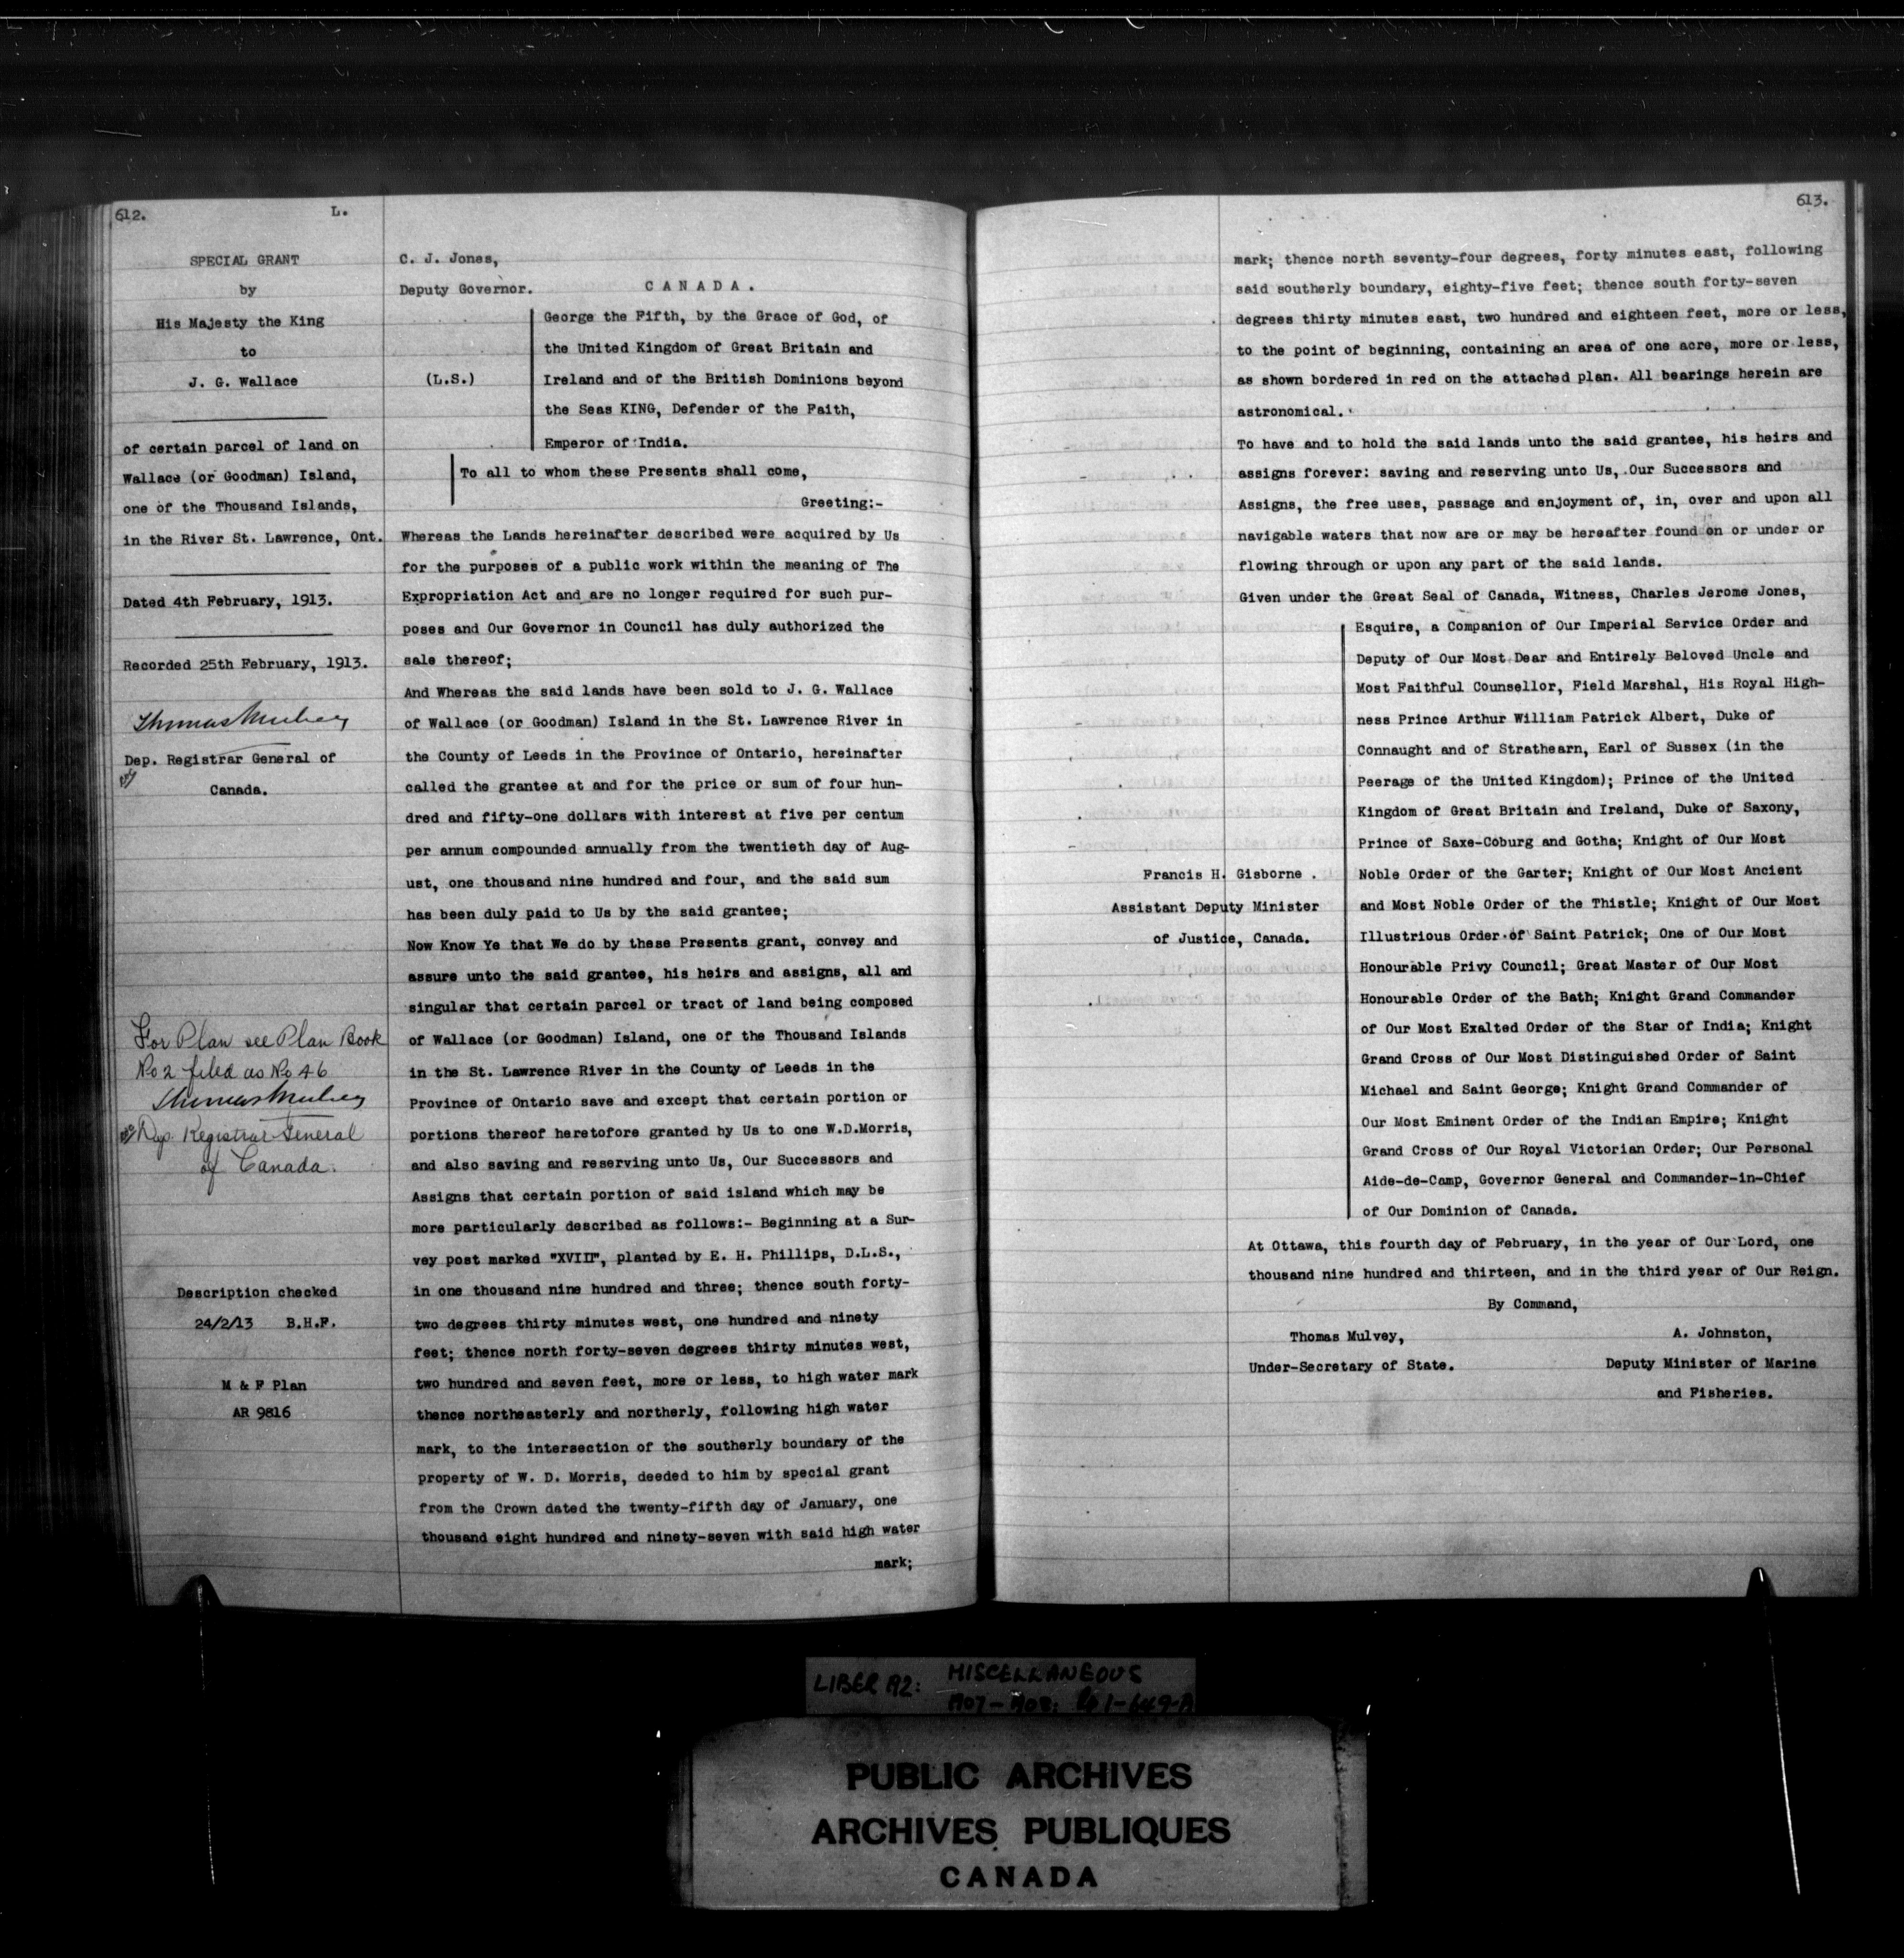 612.
L.
SPECIAL GRANT
by
His Majesty the King
to
J. G. Wallace
of certain parcel of land on
Wallace (or Goodman) Island,
one of the Thousand Islands,
in the River St. Lawrence, Ont.
Dated 4th February, 1913.
Recorded 25th February, 1913.
Thomas Mulvey
Dep. Registrar General of
Canada.
For Plan see Plan Book
No 2 filed as No 46
Thomas Mulvey
Dep. Registrar General
of Canada.
Description checked
24/2/13 B.H.F.
M & F Plan
AR 9816
C. J. Jones,
Deputy Governor.
CANADA.
(L.S.)
George the Fifth, by the Grace of God, of
the United Kingdom of Great Britain and
Ireland and of the British Dominions beyond
the Seas KING, Defender of the Faith,
Emperor of India.
To all to whom these Presents shall come,
Greeting:-
Whereas the Lands hereinafter described were acquired by Us
for the purposes of a public work within the meaning of The
Expropriation Act and are no longer required for such pur-
poses and Our Governor in Council has duly authorized the
sale thereof;
And Whereas the said lands have been sold to J. G. Wallace
of Wallace (or Goodman) Island in the St. Lawrence River in
the County of Leeds in the Province of Ontario, hereinafter
called the grantee at and for the price or sum of four hun-
dred and fifty-one dollars with interest at five per centum
per annum compounded annually from the twentieth day of Aug-
ust, one thousand nine hundred and four, and the said sum
has been duly paid to Us by the said grantee;
Now Know Ye that We do by these Presents grant, convey and
assure unto the said grantee, his heirs and assigns, all and
singular that certain parcel or tract of land being composed
of Wallace (or Goodman) Island, one of the Thousand Islands
in the St. Lawrence River in the County of Leeds in the
Province of Ontario save and except that certain portion or
portions thereof heretofore granted by Us to one W.D.Morris,
and also saving and reserving unto Us, Our Successors and
Assigns that certain portion of said island which may be
more particularly described as follows:- Beginning at a Sur-
vey post marked "XVIII", planted by E. H. Phillips, D.L.S.,
in one thousand nine hundred and three; thence south forty-
two degrees thirty minutes west, one hundred and ninety
feet; thence north forty-seven degrees thirty minutes west,
two hundred and seven feet, more or less, to high water mark
thence northeasterly and northerly, following high water
mark, to the intersection of the southerly boundary of the
property of W. D. Morris, deeded to him by special grant
from the Crown dated the twenty-fifth day of January, one
thousand eight hundred and ninety-seven with said high water
mark;
613.
mark; thence north seventy-four degrees, forty minutes east, following
said southerly boundary, eighty-five feet; thence south forty-seven
degrees thirty minutes east, two hundred and eighteen feet, more or less,
to the point of beginning, containing an area of one acre, more or less,
as shown bordered in red on the attached plan. All bearings herein are
astronomical.
To have and to hold the said lands unto the said grantee, his heirs and
assigns forever: saving and reserving unto Us, Our Successors and
Assigns, the free uses, passage and enjoyment of, in, over and upon all
navigable waters that now are or may be hereafter found on or under or
flowing through or upon any part of the said lands.
Given under the Great Seal of Canada, Witness, Charles Jerome Jones,
Esquire, a Companion of Our Imperial Service Order and
Deputy of Our Most Dear and Entirely Beloved Uncle and
Most Faithful Counsellor, Field Marshal, His Royal High-
ness Prince Arthur William Patrick Albert, Duke of
Connaught and of Strathearn, Earl of Sussex (in the
Peerage of the United Kingdom); Prince of the United
Kingdom of Great Britain and Ireland, Duke of Saxony,
Prince of Saxe-Coburg and Gotha; Knight of Our Most
Noble Order of the Garter; Knight of Our Most Ancient
and Most Noble Order of the Thistle; Knight of Our Most
Illustrious Order of Saint Patrick; One of Our Most
Honourable Privy Council; Great Master of Our Most
Honourable Order of the Bath; Knight Grand Commander
of Our Most Exalted Order of the Star of India; Knight
Grand Cross of Our Most Distinguished Order of Saint
Michael and Saint George; Knight Grand Commander of
Our Most Eminent Order of the Indian Empire; Knight
Grand Cross of Our Royal Victorian Order; Our Personal
Aide-de-Camp, Governor General and Commander-in-Chief
of Our Dominion of Canada.
Francis H. Gisborne.
Assistant Deputy Minister
of Justice, Canada.
At Ottawa, this fourth day of February, in the year of Our Lord, one
thousand nine hundred and thirteen, and in the third year of Our Reign.
By Command,
Thomas Mulvey,
Under-Secretary of State.
A. Johnston,
Deputy Minister of Marine
and Fisheries.
LIBER A2: MISCELLANEOUS
1907-1908: 1-649-A
PUBLIC ARCHIVES
ARCHIVES PUBLIQUES
CANADA